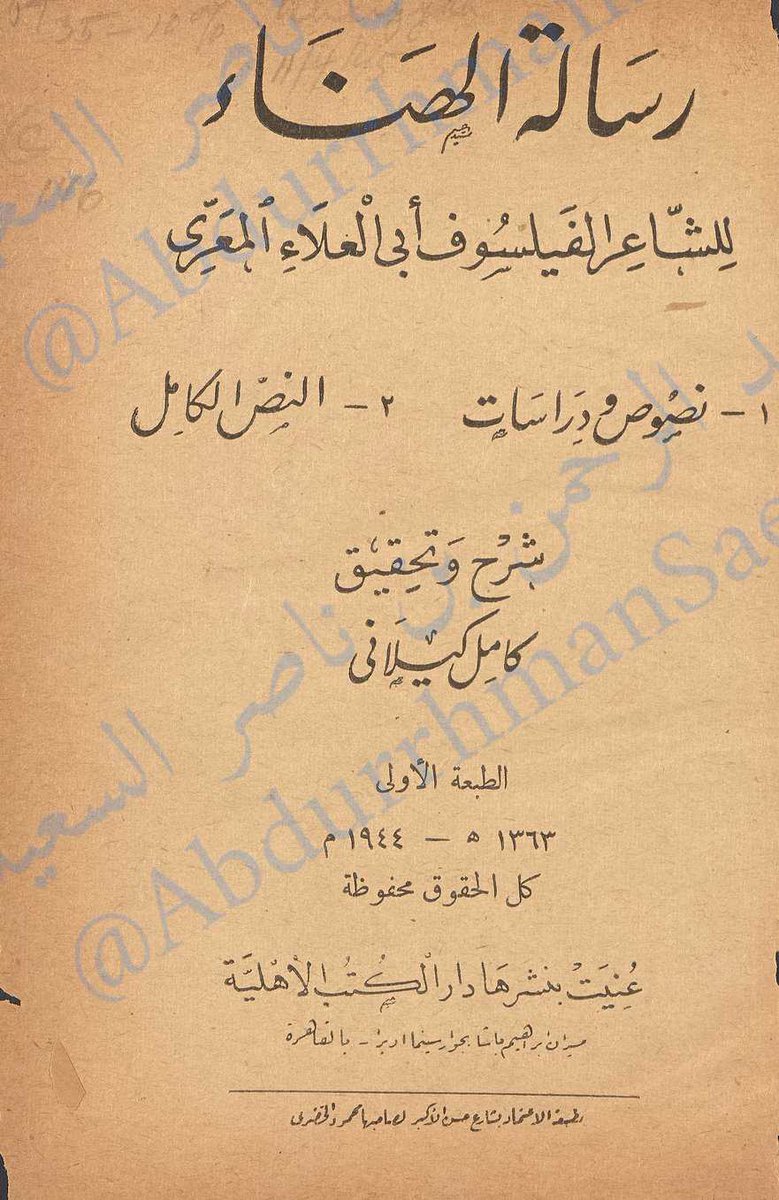 رسالة الهناء
للشاعر الفيلسوف أبي العلاء المعري
١ - نصوص ودراسات ٢ - النص الكامل
شرح وتحقيق
كامل كيلاني
الطبعة الأولى
١٣٦٣ ھ - ١٩٤٤ م
كل الحقوق محفوظة
عُنِيَت بنشرها دار الكتب الأهلية
ميدان ابراهيم باشا بجوار سينما اوبرا - بالقاهرة
مطبعة الاعتماد بشارع حسن الأكبر لصاحبها محمود الخضرى